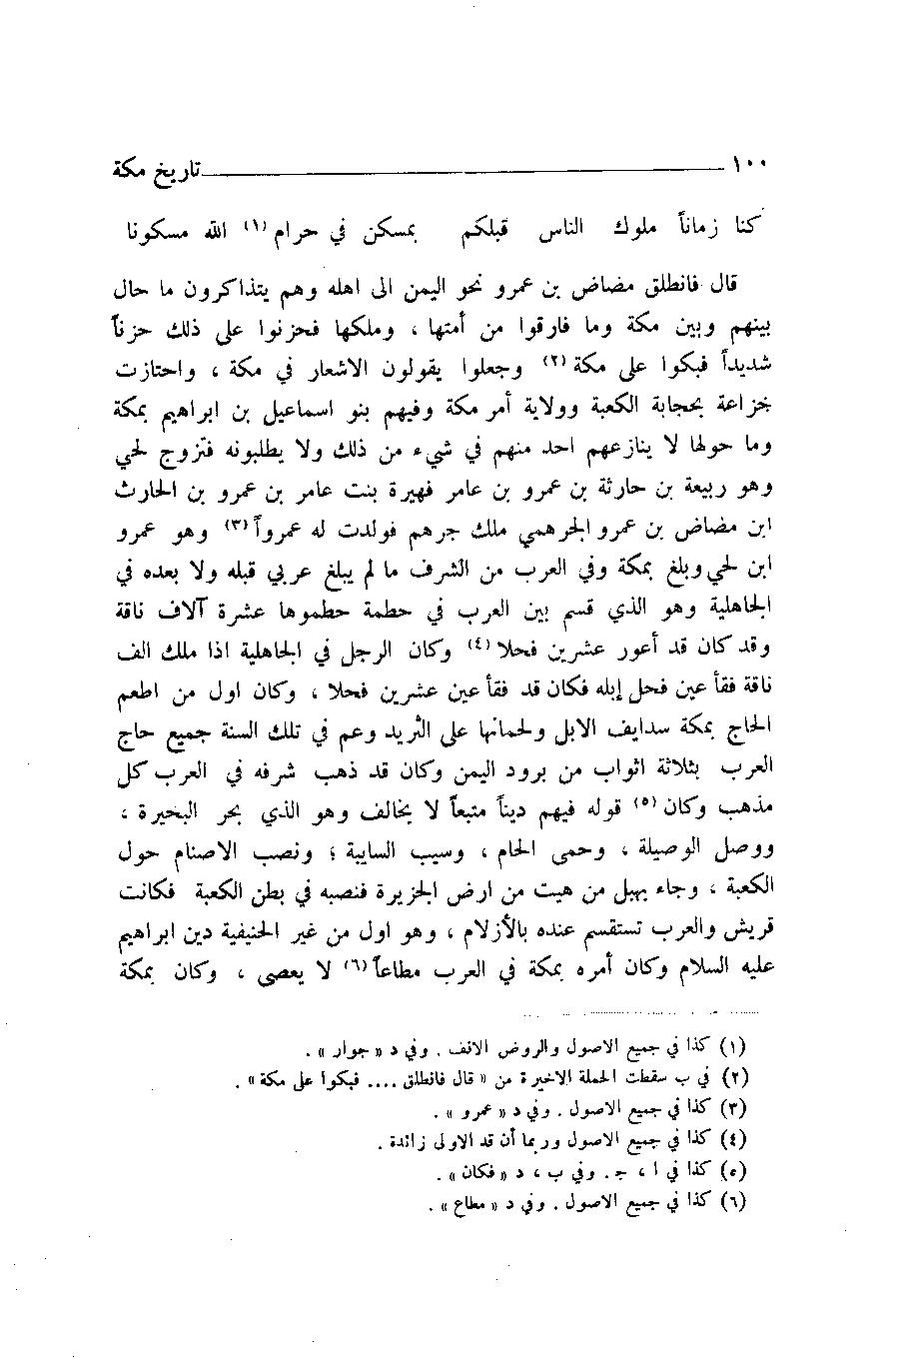 ١٠٠ تاريخ مكة
كنا زماناً ملوك الناس قبلكم بمسكن في حرام (١) الله مسكونا
قال فانطلق مضاض بن عمرو نحو اليمن الى اهله وهم يتذاكرون ما حال
بينهم وبين مكة وما فارقوا من أمنها ، وملكها فحزنوا على ذلك حزناً
شديداً فبكوا على مكة (٢) وجعلوا يقولون الاشعار في مكة ، واحتازت
خزاعة بحجابة الكعبة وولاية أمر مكة وفيهم بنو اسماعيل بن ابراهيم بمكة
وما حولها لا ينازعهم احد منهم في شيء من ذلك ولا يطلبونه فتزوج لحي
وهو ربيعة بن حارثة بن عمرو بن عامر فهيرة بنت عامر بن عمرو بن الحارث
ابن مضاض بن عمرو الجرهمي ملك جرهم فولدت له عمرواً (٣) وهو عمرو
ابن لحي وبلغ بمكة وفي العرب من الشرف ما لم يبلغ عربي قبله ولا بعده في
الجاهلية وهو الذي قسم بين العرب في حطمة حطموها عشرة آلاف ناقة
وقد كان قد أعور عشرين فحلا (٤) وكان الرجل في الجاهلية اذا ملك الف
ناقة فقأ عين فحل إبله فكان قد فقأ عين عشرين فحلا ، وكان اول من اطعم
الحاج بمكة سدايف الابل ولحمانها على الثريد وعم في تلك السنة جميع حاج
العرب بثلاثة اثواب من برود اليمن وكان قد ذهب شرفه في العرب كل
مذهب وكان (٥) قوله فيهم ديناً متبعاً لا يخالف وهو الذي بحر البحيرة ،
ووصل الوصيلة ، وحمى الحام ، وسيب السايبة ؛ ونصب الاصنام حول
الكعبة ، وجاء بهبل من هيت من ارض الجزيرة فنصبه في بطن الكعبة فكانت
قريش والعرب تستقسم عنده بالأزلام ، وهو اول من غير الحنيفية دين ابراهيم
عليه السلام وكان أمره بمكة في العرب مطاعاً (٦) لا يعصى ، وكان بمكة
(١) كذا في جميع الاصول والروض الانف . وفي د « جوار » .
(٢) في ب سقطت الجملة الاخيرة من « قال فانطلق .... فبكوا على مكة » .
(٣) كذا في جميع الاصول . وفي د « عمرو » .
(٤) كذا في جميع الاصول وربما أن قد الاولى زائدة .
(٥) كذا في ا ، ج . وفي ب ، د « فكان » .
(٦) كذا في جميع الاصول . وفي د « مطاع » .